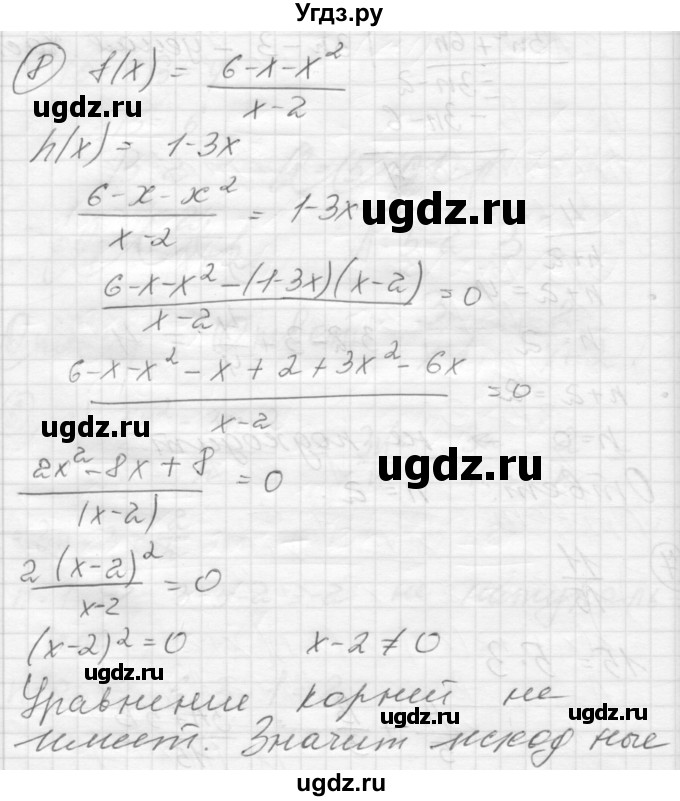 Угдз.ру
⑧ f(x) = (6-x-x²)/(x-2)
ugdz.ru
h(x) = 1-3x
(6-x-x²)/(x-2) = 1-3x
ugdz.ru
(6-x-x²-(1-3x)(x-2))/(x-2) = 0
(6-x-x²-x+2+3x²-6x)/(x-2) = 0
ugdz.ru
(2x²-8x+8)/(x-2) = 0
ugdz.ru
2(x-2)²/(x-2) = 0
(x-2)² = 0 x-2 ≠ 0
ugdz.ru
Уравнение корней не
ugdz.ru ugdz.ru
имеет. Значит исходные
ugdz.ru